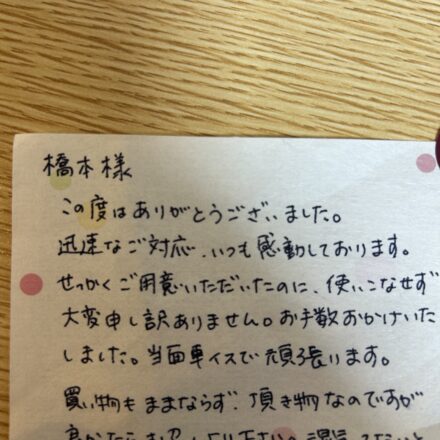 橋本様
この度はありがとうございました。
迅速なご対応、いつも感動しております。
せっかくご用意いただいたのに、使いこなせず
大変申し訳ありません。お手数おかけいた
しました。当面車イスで頑張ります。
買い物もままならず、頂き物なのですが
良かったらお召し